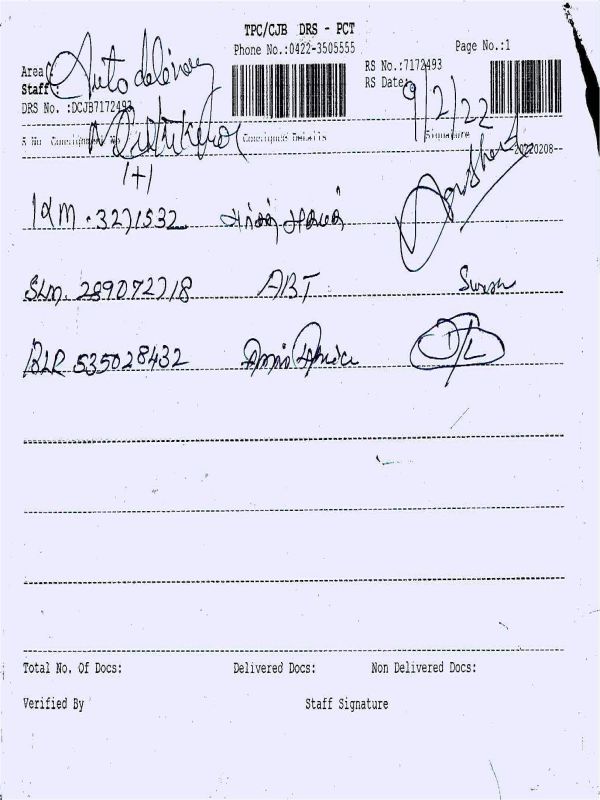 TPC/CJB DRS - PCT
Phone No.:0422-3505555 Page No.:1
Area : Auto delivery RS No.:7172493
Staff : RS Date: 9/2/22
DRS No. :DCJB7172493
S No Consignment No Consignee Details Signature
--20220208--
1+1
KM. 3271532
SLM. 289072718 ABT Suresh
BLR 535028432
Total No. Of Docs: Delivered Docs: Non Delivered Docs:
Verified By Staff Signature